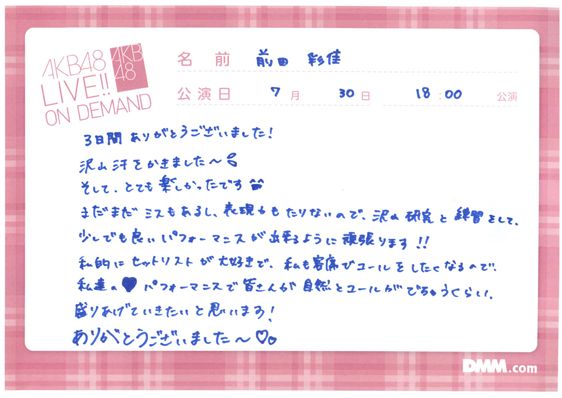 AKB48
LIVE!!
ON DEMAND
AKB
48
名前 前田 彩佳
公演日 7月 30日 18:00 公演
3日間 ありがとうございました!
沢山汗をかきました〜
そして、とても楽しかったです
まだまだ ミスもあるし、表現力もたりないので、沢山 研究 と 練習をして、
少しでも良いパフォーマンスが出来るように頑張ります!!
私的に セットリスト が 大好きで、私も客席でコールをしたくなるので、
私達の♥パフォーマンスで皆さんが自然とコールがでちゃうくらい、
盛りあげていきたいと思います!
ありがとうございました〜♡
DMM.com